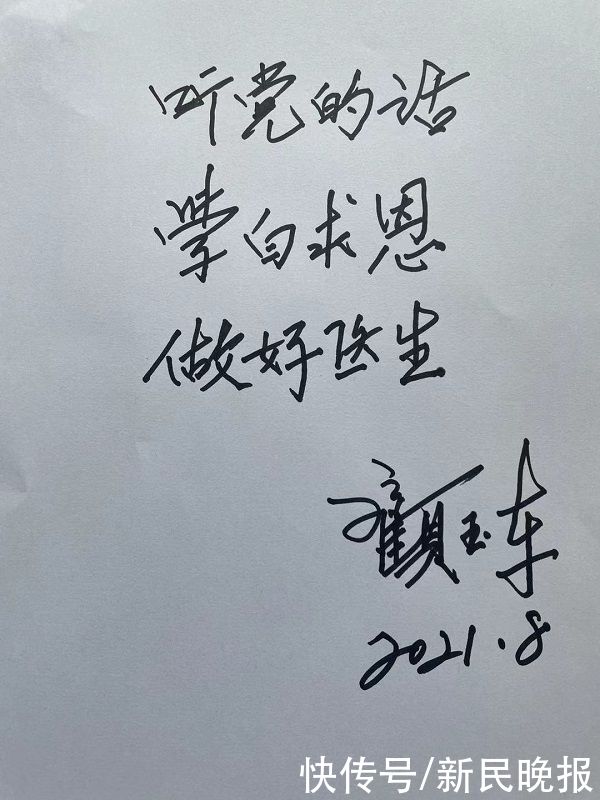 听党的话
学白求恩
做好医生
顾玉东
2021.8
快传号/新民晚报